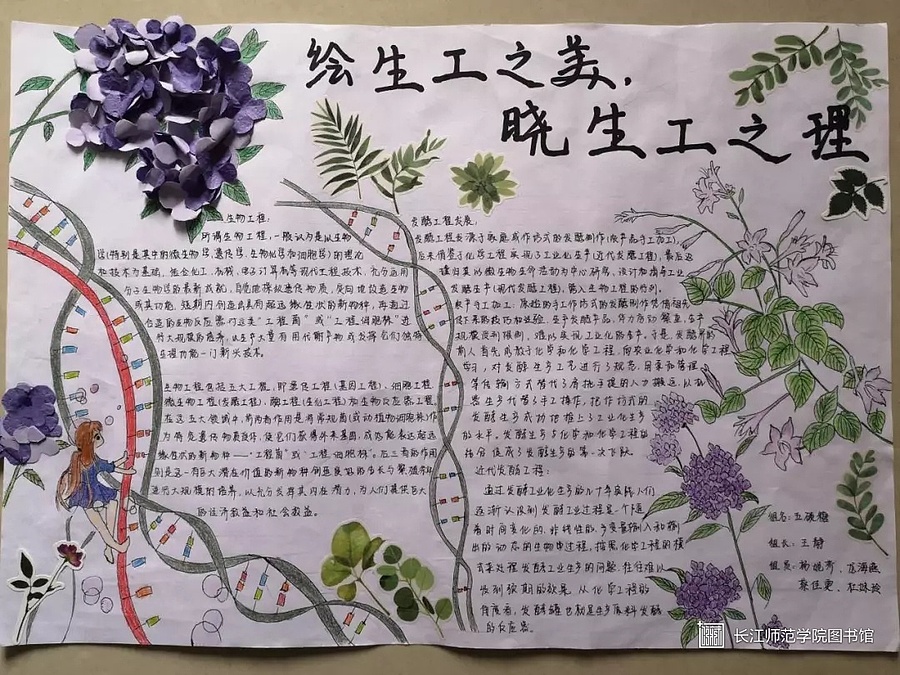 绘生工之美，
晓生工之理
生物工程：
所谓生物工程，一般认为是以生物
学(特别是其中的微生物学、遗传学、生物化学和细胞学)的理论
和技术为基础，结合化工、机械、电子计算机等现代工程技术，充分运用
分子生物学的最新成就，自觉地操纵遗传物质，定向地改造生物
或其功能，短期内创造出具有超远缘性状的新物种，再通过
合适的生物反应器对这类“工程菌”或“工程细胞株”进
行大规模的培养，以生产大量有用代谢产物或发挥它们独特
生理功能一门新兴技术。
生物工程包括五大工程，即遗传工程(基因工程)、细胞工程
微生物工程(发酵工程)、酶工程(生化工程)和生物反应器工程
在这五大领域中，前两者作用是将常规菌(或动植物细胞株)作
为特定遗传物质受体，使它们获得外来基因，成为能表达超远
缘性状的新物种——“工程菌”或“工程细胞株”。后三者的作用
则是这一有巨大潜在价值的新物种创造良好的生长与繁殖条件
进行大规模的培养，以充分发挥其内在潜力，为人们提供巨大
的经济效益和社会效益。
发酵工程发展：
发酵工程发源于家庭或作坊式的发酵制作(农产品手工加工)，
后来借鉴于化学工程实现了工业化生产(近代发酵工程)，最后返
璞归真以微生物生命活动为中心研究、设计和指导工业
发酵生产(现代发酵工程)，跨入生物工程的行列。
农产手工加工：原始的手工作坊式的发酵制作凭借祖先
传下来的技巧和经验，生产发酵产品，体力劳动繁重，生产
规模受到限制，难以实现工业化的生产。于是，发酵界的
前人首先求教于化学和化学工程，向农业化学和化学工程
学习，对发酵生产工艺进行了规范，用泵和管道
等传输方式替代了肩挑手提的人力搬运，以机
器生产代替了手工操作，把作坊式的
发酵生产成功地推上了工业化生产
的水平。发酵生产与化学和化学工程的
结合促成了发酵生产的第一次飞跃。
近代发酵工程：
通过发酵工业化生产的几十年实践，人们
逐渐认识到发酵工业过程是一个随
着时间变化的、非线性的、多变量输入和输
出的动态的生物学过程，按照化学工程的模
式来处理发酵工业生产的问题，往往难以
收到预期的效果。从化学工程的
角度看，发酵罐也就是生产原料发酵
的反应器。
组名：
组长：王静
组员：
长江师范学院图书馆